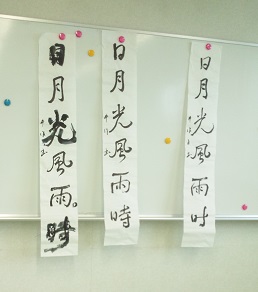 日月光風雨時
日月光風雨時
日月光風雨时